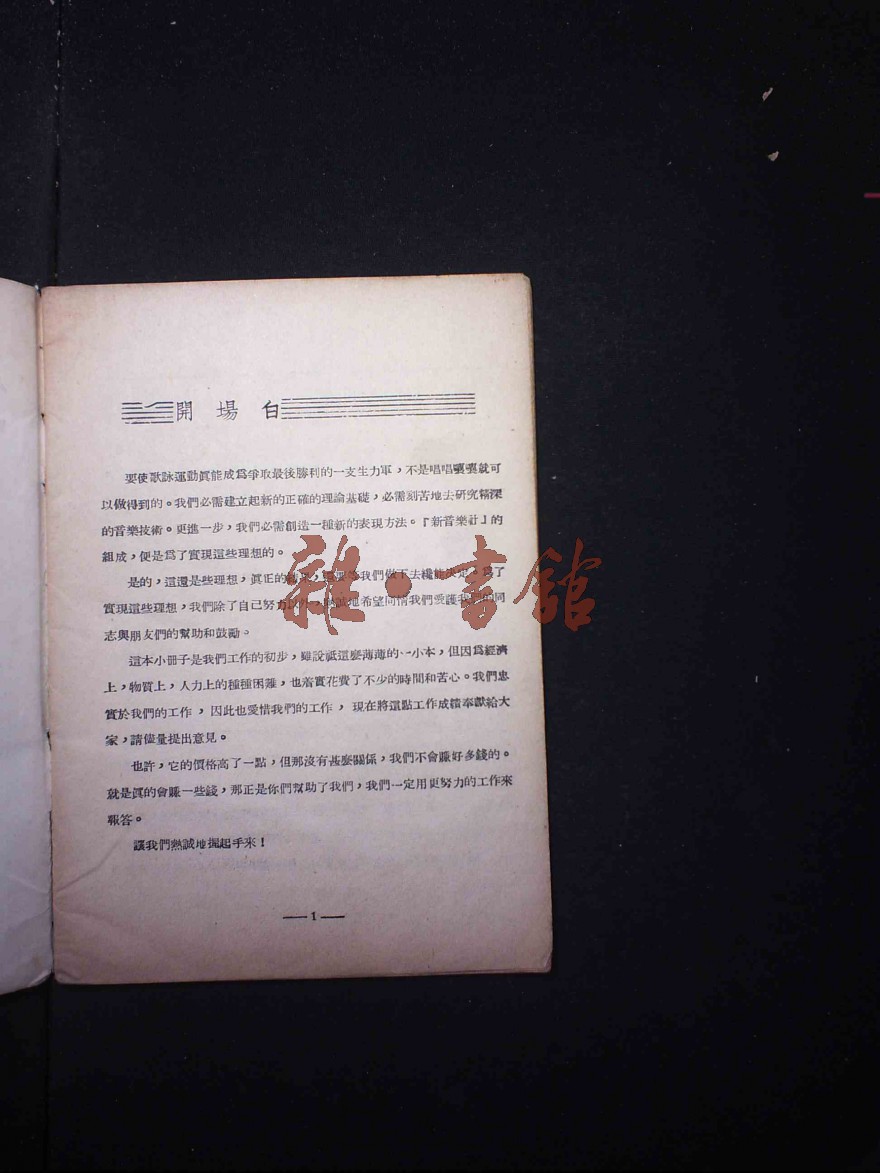 開場白
要使歌詠運動眞能成爲爭取最後勝利的一支生力軍，不是唱唱嚷嚷就可
以做得到的。我們必需建立起新的正確的理論基礎，必需刻苦地去研究精深
的音樂技術。更進一步，我們必需創造一種新的表現方法。『新音樂社』的
組成，便是爲了實現這些理想的。
是的，這還是些理想，眞正的結果，還要等我們做下去纔能決定。爲了
實現這些理想，我們除了自己努力以外，熱誠地希望同情我們愛護我們的同
志與朋友們的幫助和鼓勵。
這本小冊子是我們工作的初步，雖說祗這麼薄薄的一小本，但因爲經濟
上，物質上，人力上的種種困難，也着實花費了不少的時間和苦心。我們忠
實於我們的工作，因此也愛惜我們的工作，現在將這點工作成績奉獻給大
家，請儘量提出意見。
也許，它的價格高了一點，但那沒有甚麼關係，我們不會賺好多錢的。
就是眞的會賺一些錢，那正是你們幫助了我們，我們一定用更努力的工作來
報答。
讓我們熱誠地握起手來！
—1—
雜·書館